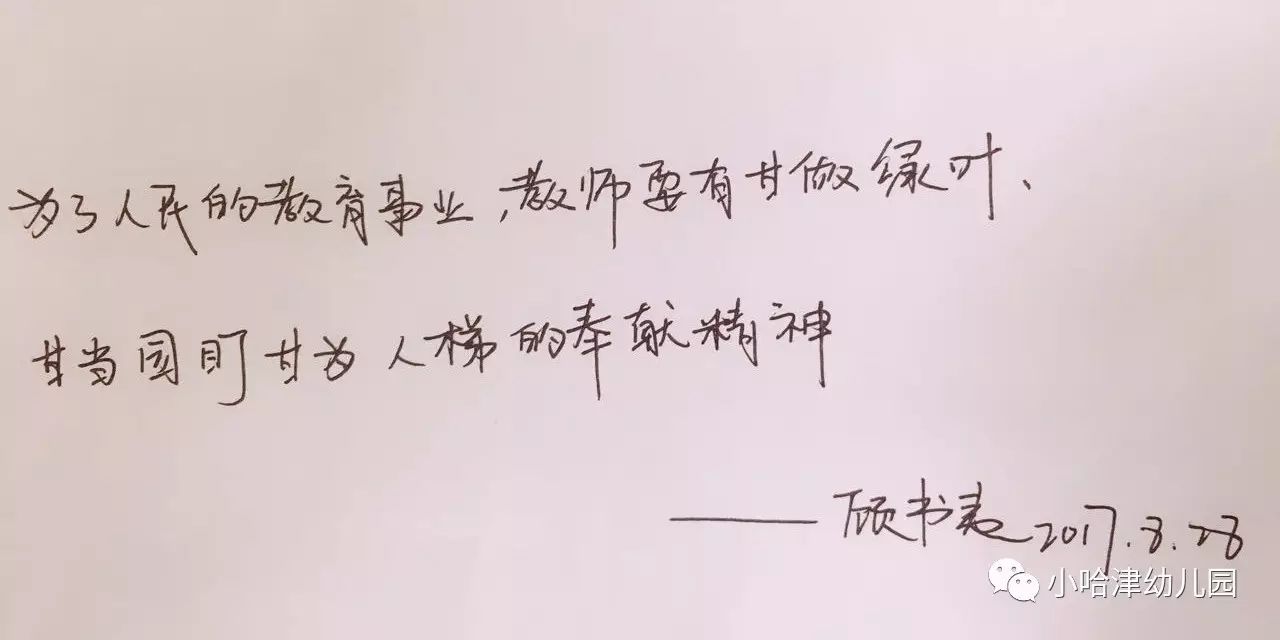 为了人民的教育事业,教师要有甘做绿叶、
甘当园丁甘为人梯的奉献精神
——顾书 2017.8.28
小哈津幼儿园